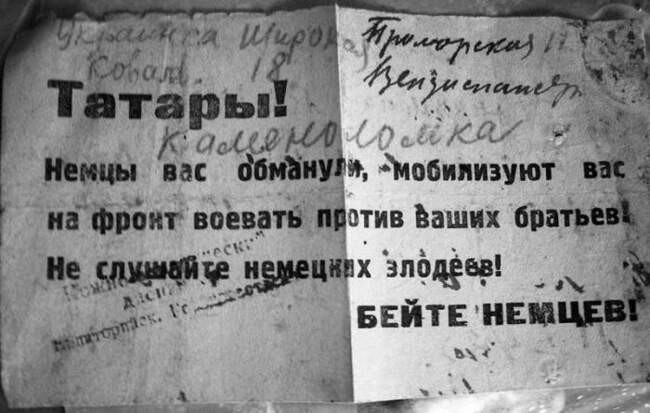 Украинка Широкая
Ковал. 18
Приморская 17
Татары!
Каменоломка
Немцы вас обманули, мобилизуют вас
на фронт воевать против ваших братьев!
Не слушайте немецких злодеев!
БЕЙТЕ НЕМЦЕВ!